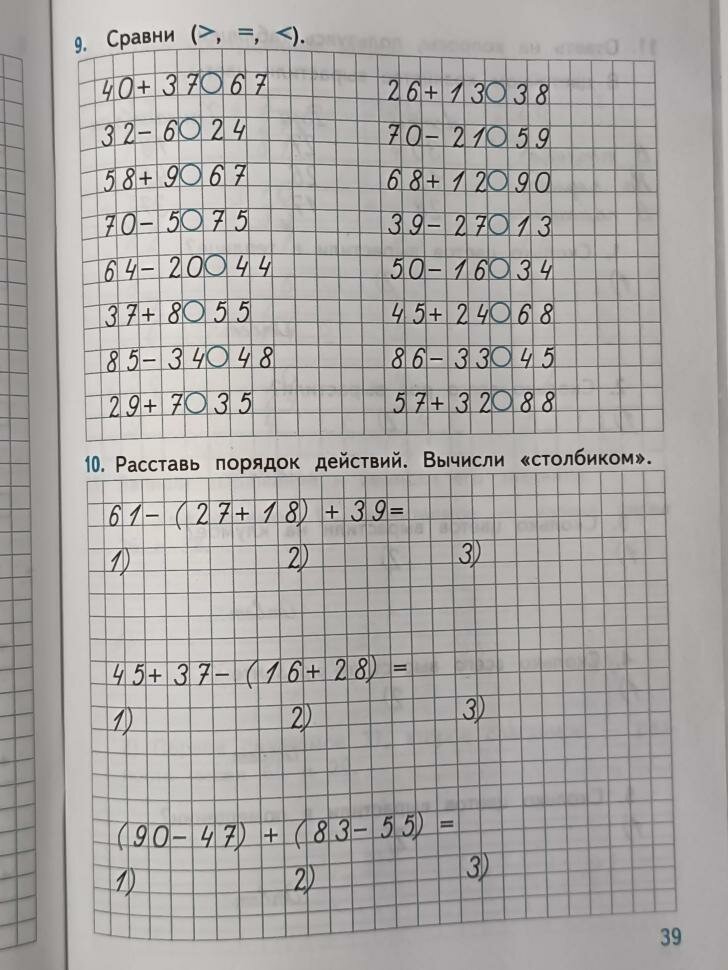 9. Сравни (>, =, <).
40+37○67 26+13○38
32-6○24 70-21○59
58+9○67 68+12○90
70-5○75 39-27○13
64-20○44 50-16○34
37+8○55 45+24○68
85-34○48 86-33○45
29+7○35 57+32○88
10. Расставь порядок действий. Вычисли «столбиком».
61-(27+18)+39=
1) 2) 3)
45+37-(16+28)=
1) 2) 3)
(90-47)+(83-55)=
1) 2) 3)
39